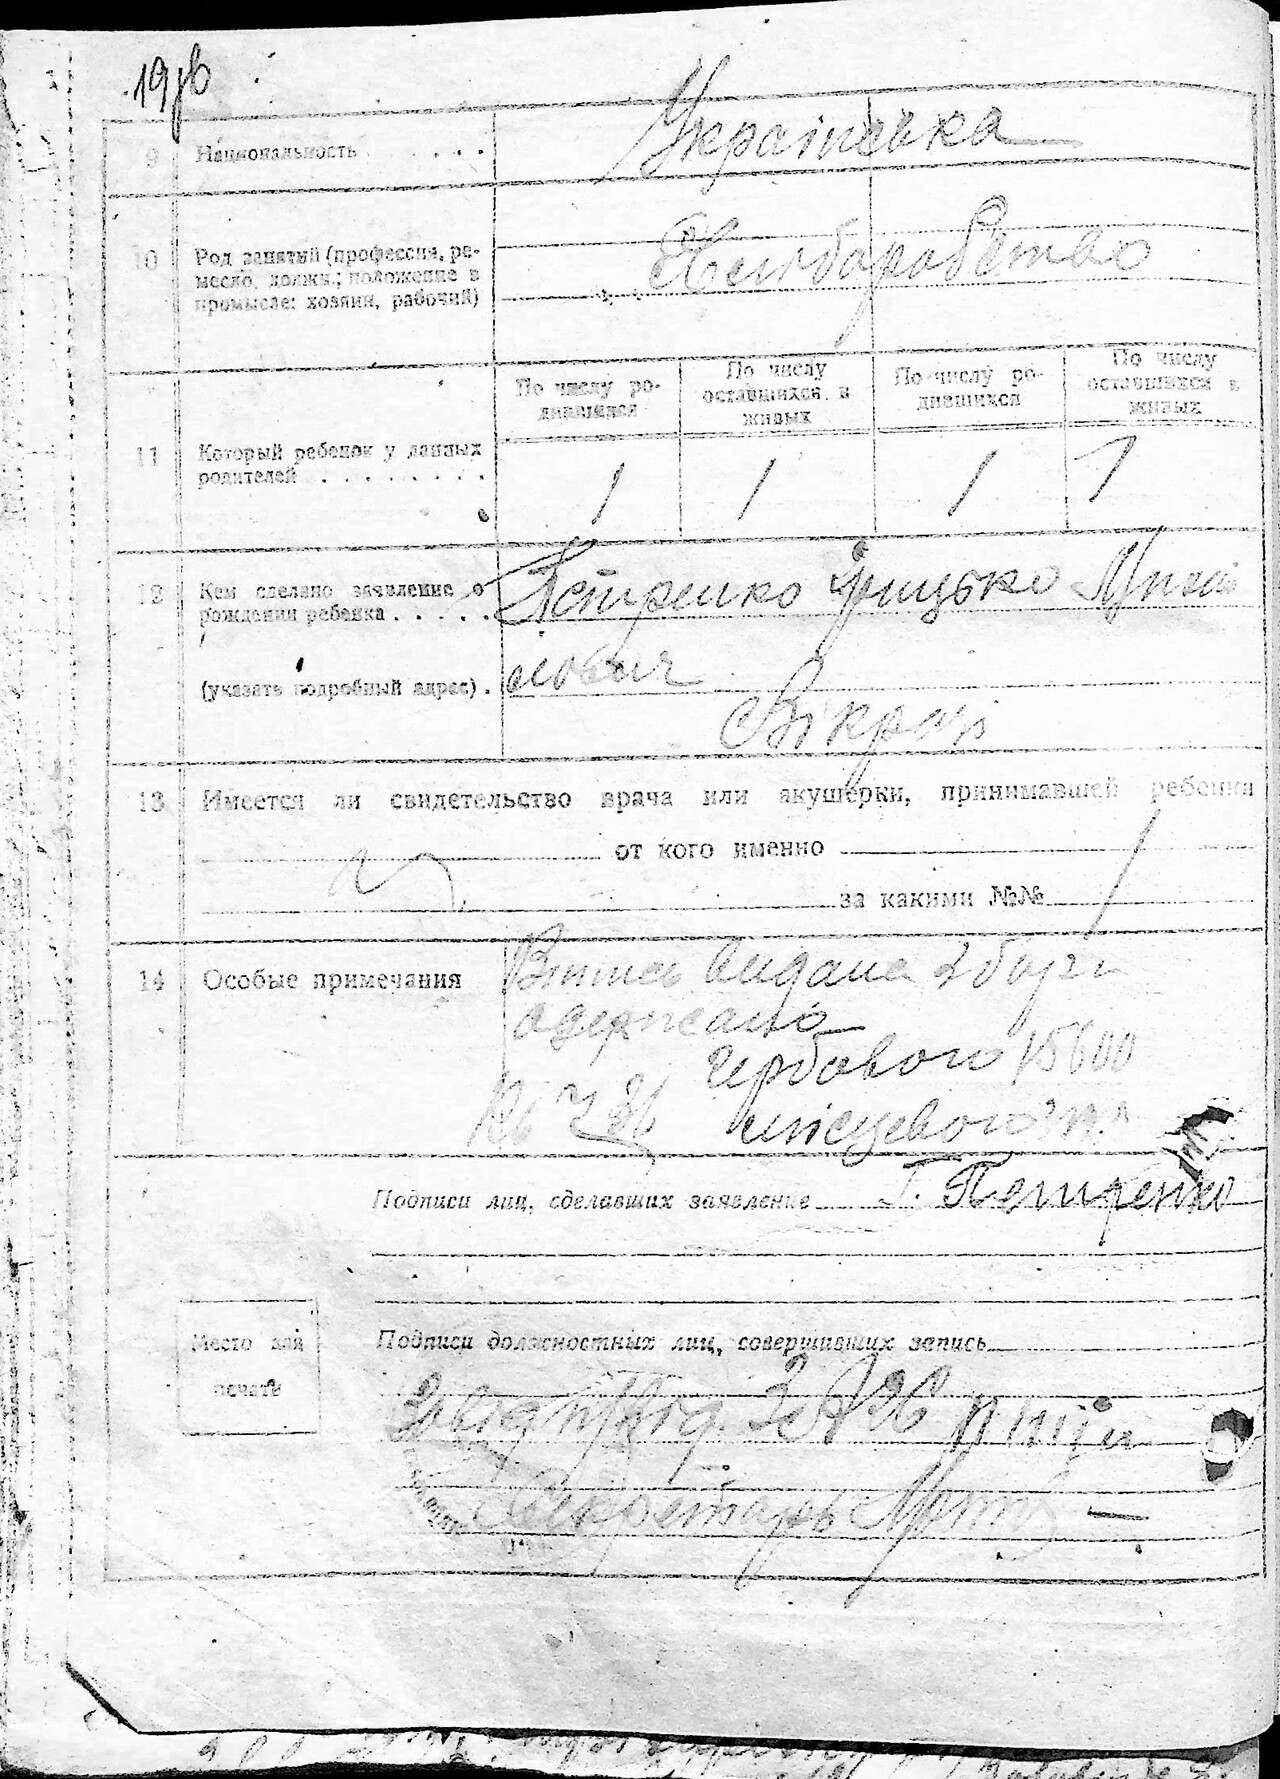 9 Национальность . . . . . . Українська
10 Род занятий (профессия, ре-
месло, должн.; положение в
промысле: хозяин, рабочий)
Хлеборобство
По числу ро-
дившихся
По числу
оставшихся в
живых
По числу ро-
дившихся
По числу
оставшихся в
живых
11 Который ребенок у данных
родителей . . . . . . . .
1 1 1 1
12 Кем сделано заявление о
рождении ребенка . . . . .
Петренко Грицько
(указать подробный адрес) .
13 Имеется ли свидетельство врача или акушерки, принимавшей ребенка
от кого именно
за какими №№
14 Особые примечания
видана
одержано
гербового 15600
місцевого
Подписи лиц, сделавших заявление Г. Петренко
Место для
печати
Подписи должностных лиц, совершивших запись
Секретарь